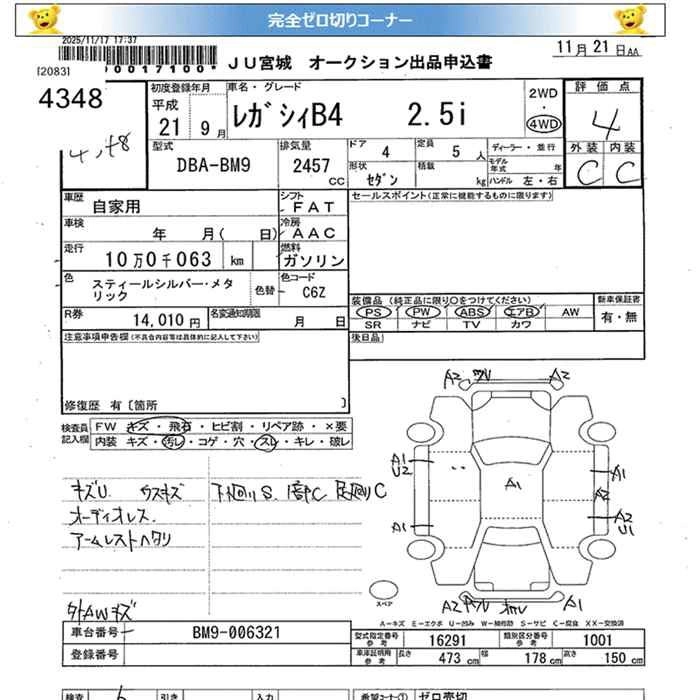 完全ゼロ切りコーナー
2025/11/17 17:37
11月21日AA
[2083]
*00017100*
JU宮城 オークション出品申込書
4348
初度登録年月
平成
21 9月
車名・グレード
レガシィB4 2.5i
2WD
・
4WD
評価点
4
外装 内装
C C
型式
DBA-BM9
排気量
2457
CC
ドア 4
定員 5人
形状
セダン
積載
kg
ディーラー・並行
モデル
年式 年
ハンドル 左・右
車歴
自家用
シフト
FAT
車検
年 月( 日)
冷房
AAC
走行
10万0千063 km
燃料
ガソリン
色
スティールシルバー・メタ
リック
色替
色コード
C6Z
R券
14,010円
名変通知期限
月 日
セールスポイント(正常に機能するものに限ります)
装備品(純正品に限り○をつけてください)
PS PW ABS エアB AW
SR ナビ TV カワ
新車保証書
有・無
後日品
注意事項申告欄(不具合内容等は具体的に記入して下さい)
修復歴 有〔箇所 〕
検査員
記入欄
FW キズ・飛石・ヒビ割・リペア跡・×要
内装 キズ・汚レ・コゲ・穴・スレ・キレ・破レ
キズU ウスキズ
オーディオレス
アームレストヘタリ
下廻りS
外AWキズ
A2 A2
A1
U2
A1
A1
A1
A2
A2
U1
A2 A1
スペア
A-キズ E-エクボ U-凹み W-補修跡 S-サビ C-腐食 XX-交換済
車台番号
BM9-006321
登録番号
型式指定番号
参考
16291
類別区分番号
参考
1001
車庫証明用
参考
長さ 473 cm
幅 178 cm
高さ 150 cm
検査
引き
入力
希望コーナー①
ゼロ売切